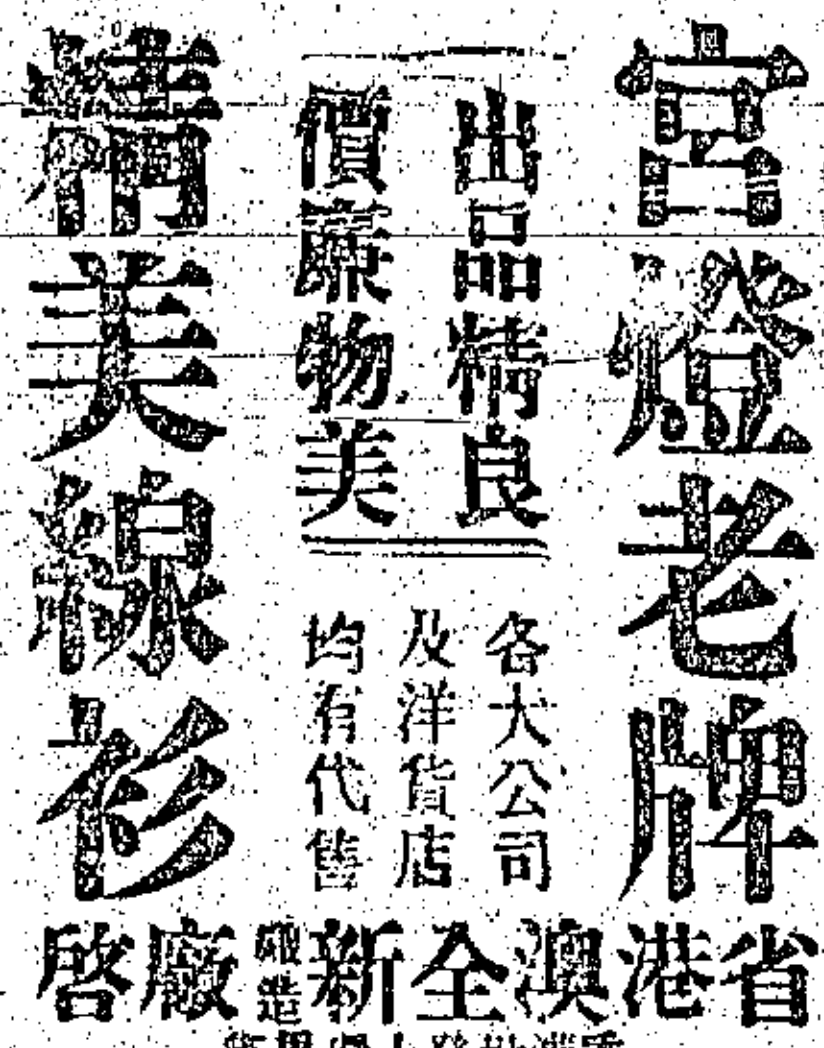 宮燈老牌
出品精良
價廉物美
各大公司
及洋貨店
均有代售
精美線衫
省港澳全新織造廠啓